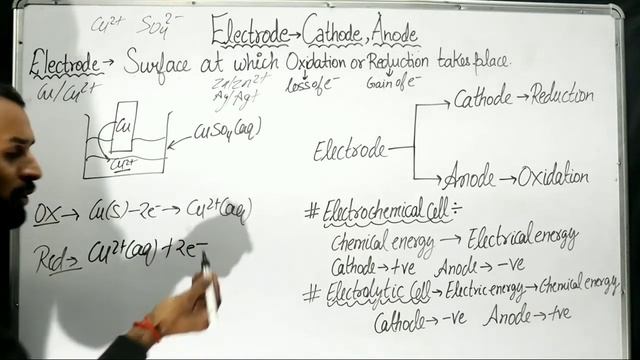 Cu²⁺ SO₄²⁻
Electrode → Cathode, Anode
Electrode → Surface at which Oxidation or Reduction takes place.
Cu/Cu²⁺
Zn/Zn²⁺
Ag/Ag⁺
loss of e⁻
Gain of e⁻
Cu
Cu²⁺
CuSO₄(aq)
Electrode
Cathode → Reduction
Anode → Oxidation
OX → Cu(s) - 2e⁻ → Cu²⁺(aq)
Red → Cu²⁺(aq) + 2e⁻
# Electrochemical Cell ÷
Chemical energy → Electrical energy
Cathode → +ve Anode → -ve
# Electrolytic Cell → Electric energy → Chemical energy
Cathode → -ve Anode → +ve